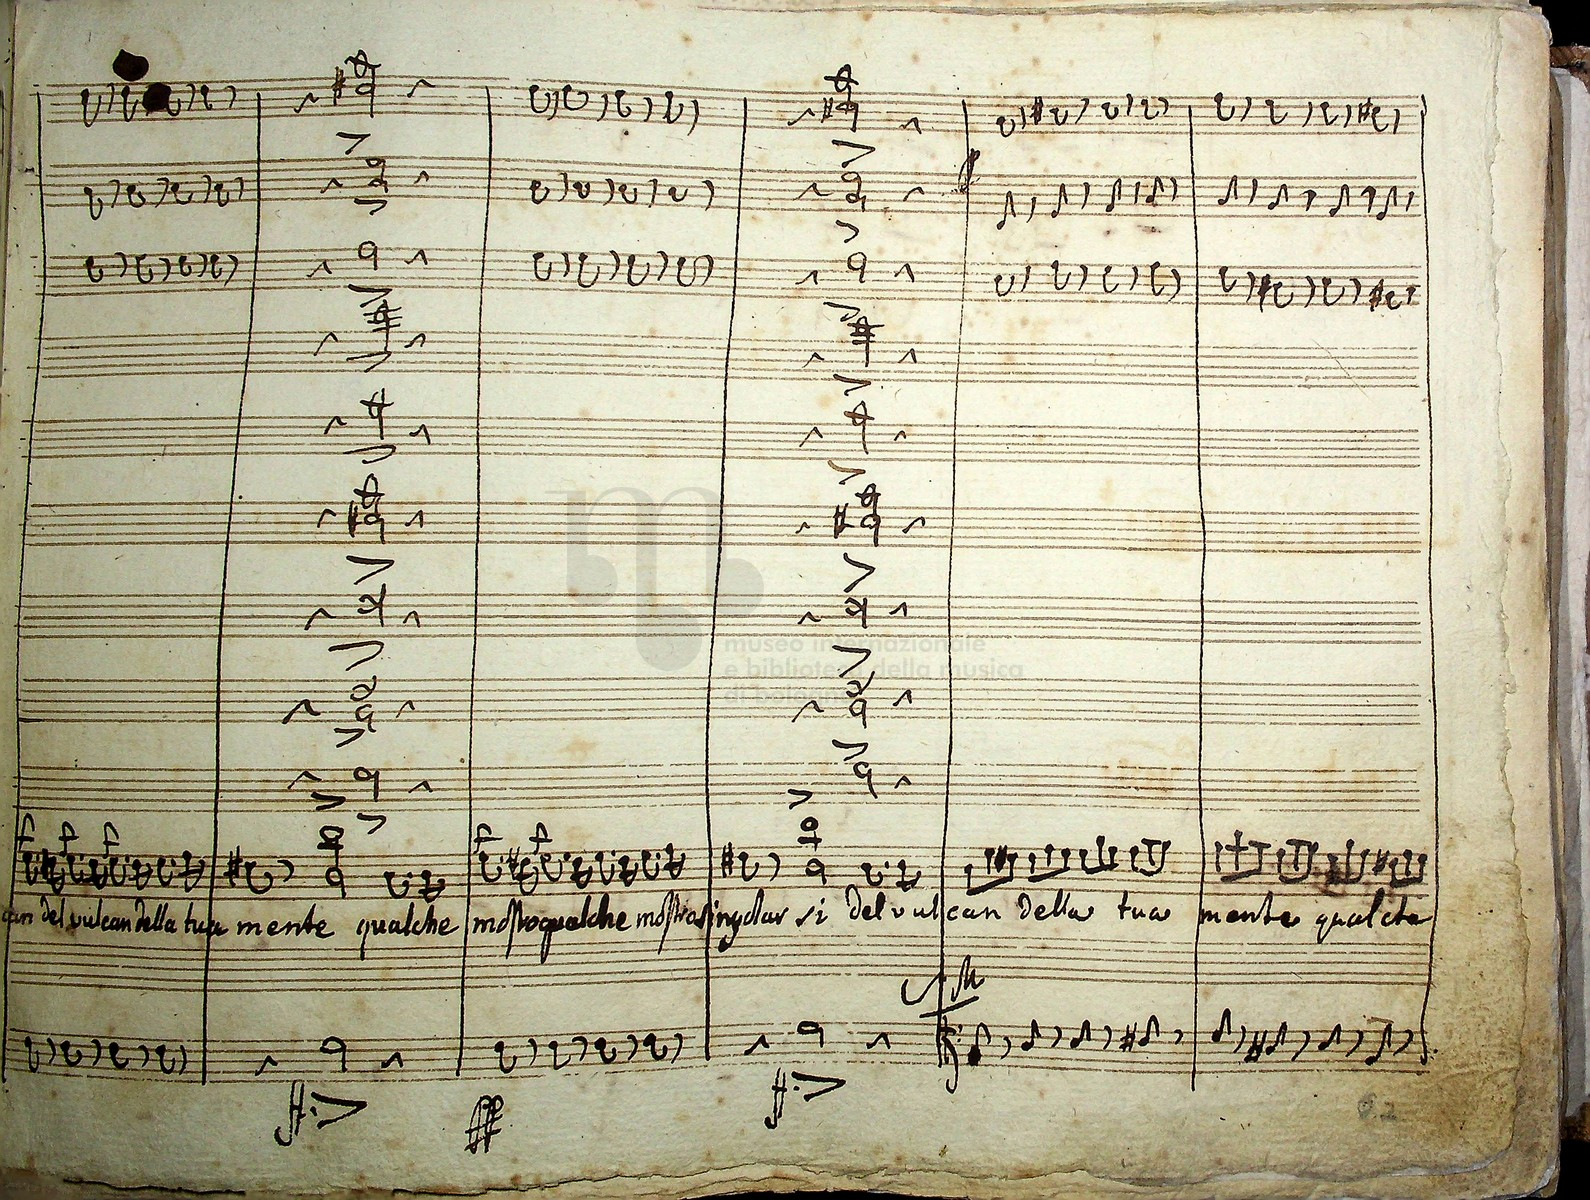 f f f f f
museo internazionale
e biblioteca della musica
di bologna
can del vulcan della tua mente qualche mostro qualche mostra singolar si del vulcan della tua mente qualche
ff
62